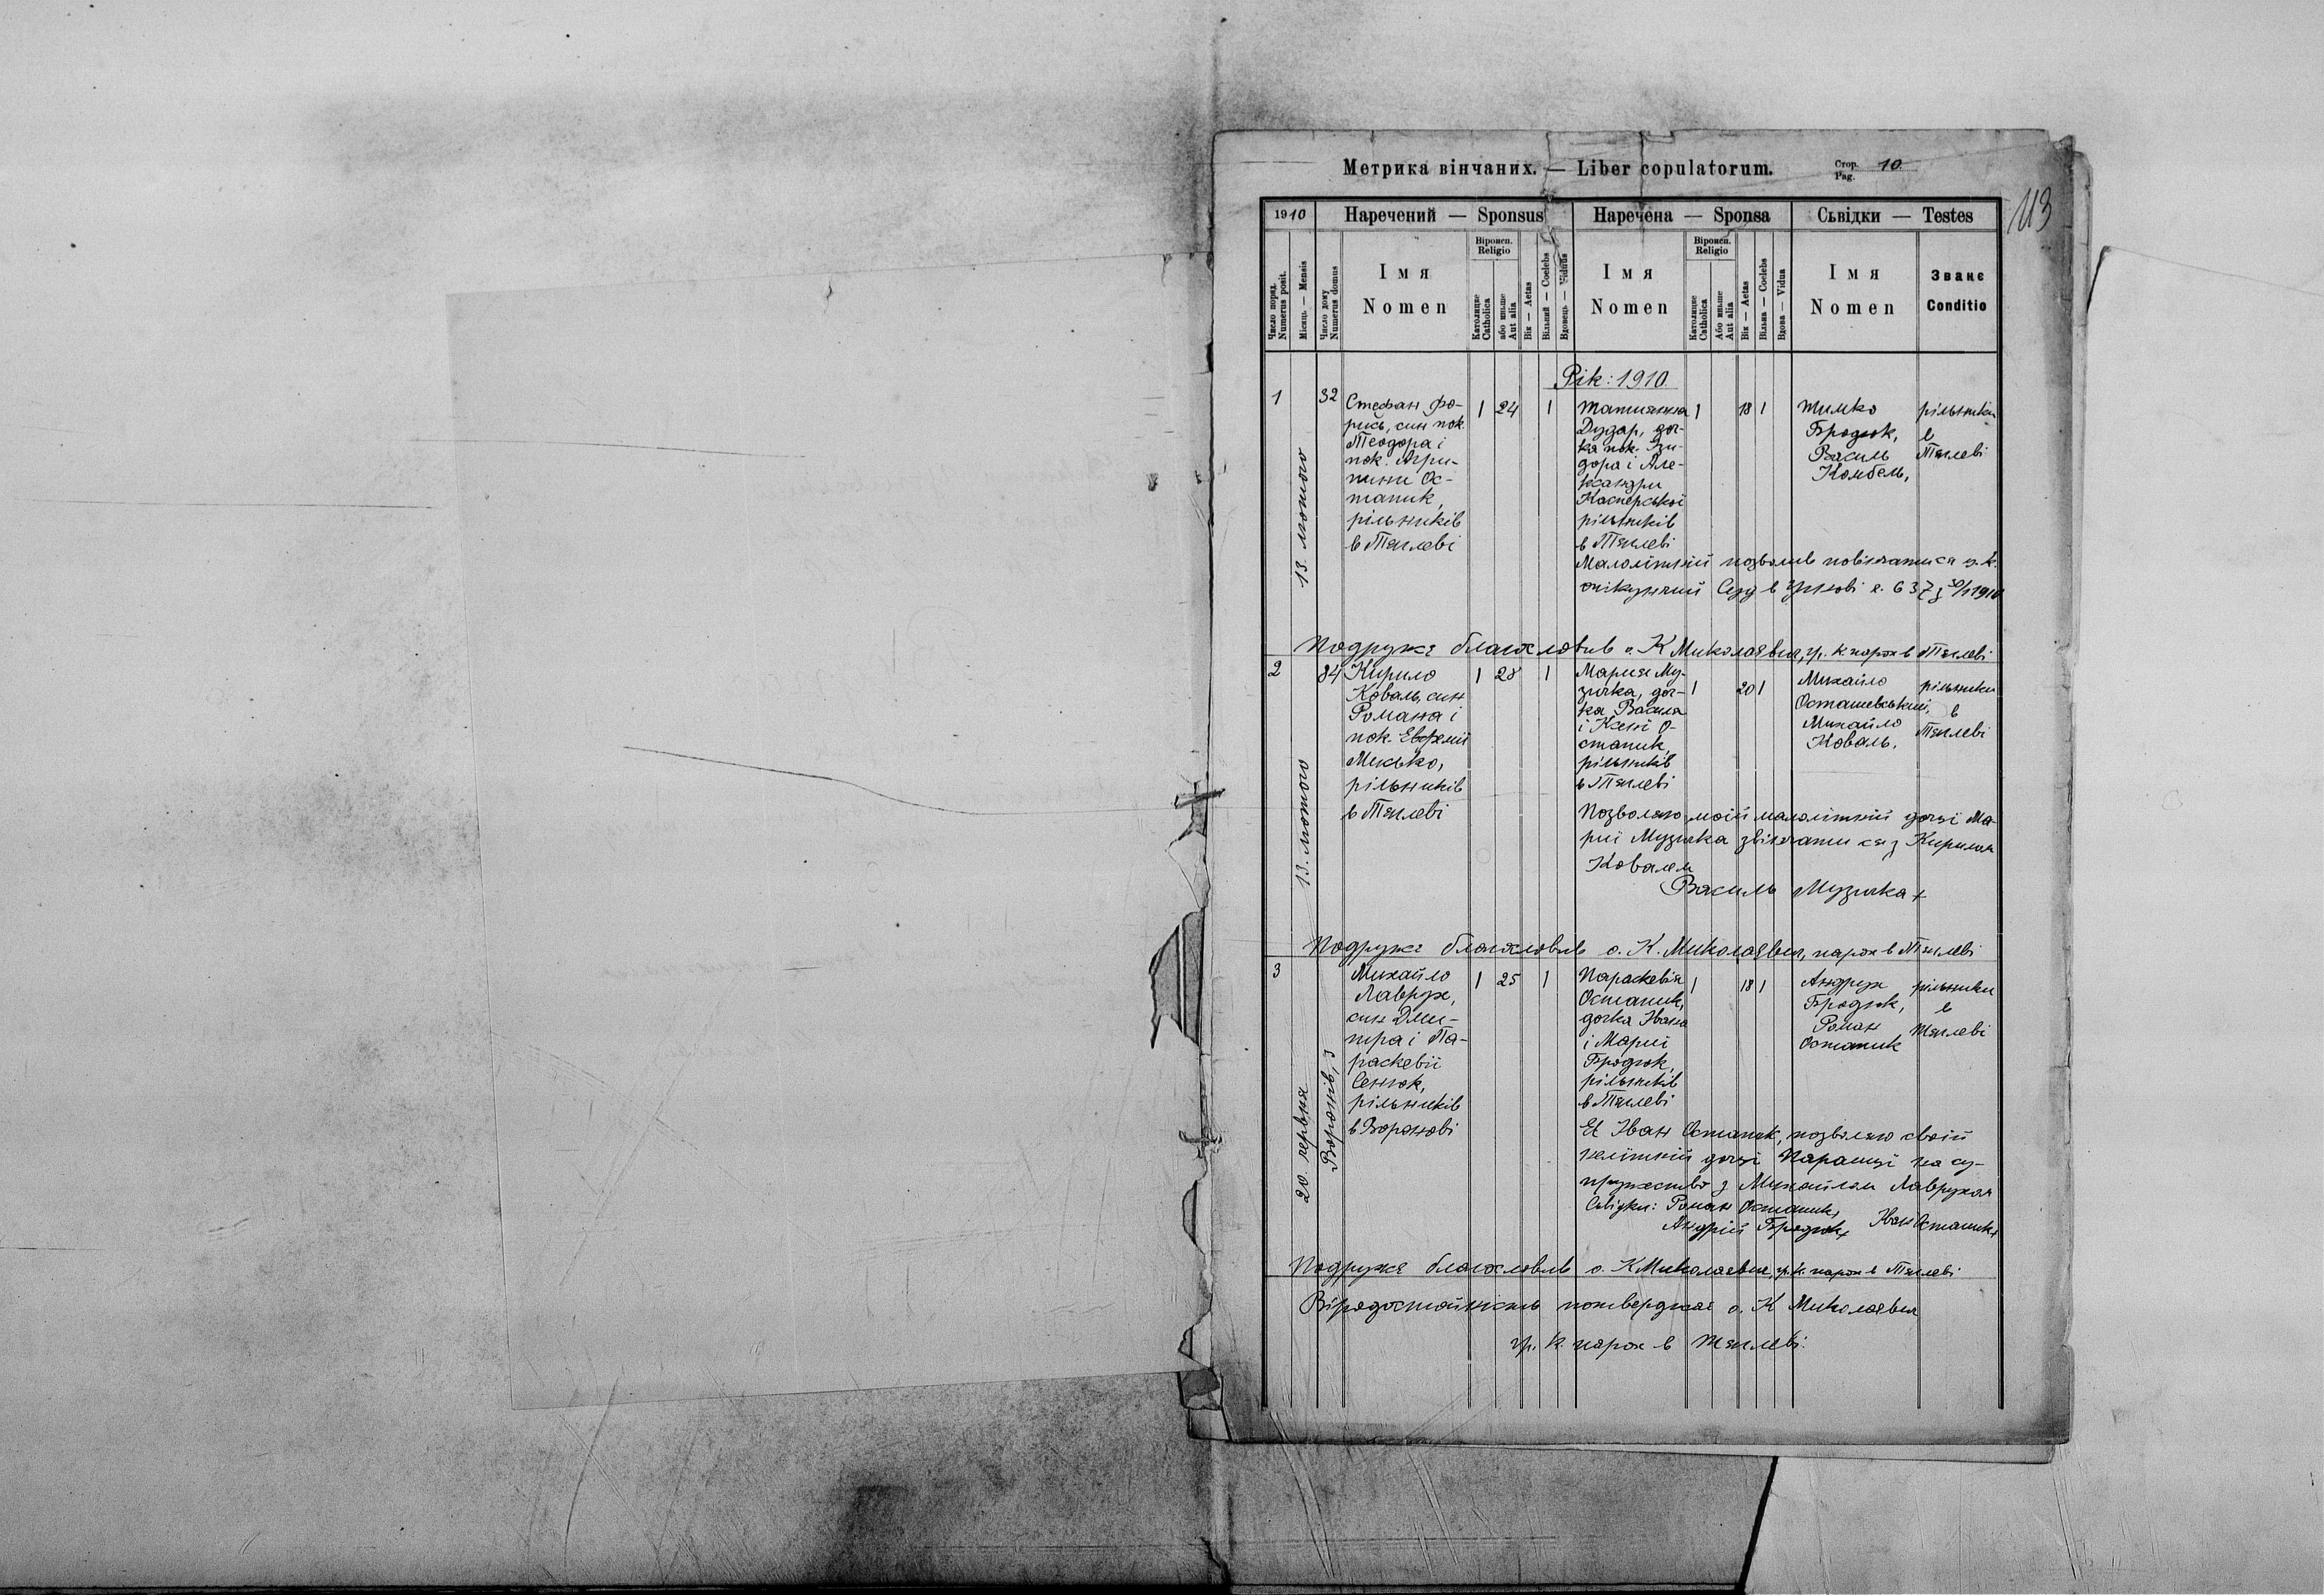 Метрика вінчаних. — Liber copulatorum.
Стор. Pag. 10.
113
1910
Наречений — Sponsus
Наречена — Sponsa
Сьвідки — Testes
Число поряд. Numerus posit.
Місяць — Mensis
Число дому Numerus domus
Імя
Nomen
Віроисп. Religio
Католицке Catholica
або иньше Aut alia
Вік — Aetas
Вільний — Coelebs
Вдовець — Viduus
Імя
Nomen
Віроисп. Religio
Католицке Catholica
Або иньше Aut alia
Вік — Aetas
Вільна — Coelebs
Вдова — Vidua
Імя
Nomen
Званє
Conditio
Рік: 1910
1
13. лютого
32
Стефан Фо-
рись, син пок.
Теодора і
пок. Агри-
пини Ос-
тапик,
рільників
в Тяглеві
1 24 1
Татиянна
Дудар, доч-
ка пок. Ізи-
дора і Але-
ксандри
Касперської
рільників
в Тяглеві
1 18 1
Тимко
Бродюк,
Василь
Комбель,
рільники
в
Тяглеві
Малолітній позволив повінчатися ц. к.
опікунчий Суд в Угнові ч. 637
Подружє благословив о. К Миколаєвич, гр. к. парох в Тяглеві
2
13. лютого
84
Кирило
Коваль, син
Романа і
пок. Евфемії
Мисько,
рільників
в Тяглеві
1 28 1
Мария Му-
зичка, доч-
ка Василя
і Ксені О-
стапик,
рільників
в Тяглеві
1 20 1
Михайло
Осташевський,
Михайло
Коваль.
рільники
в
Тяглеві
Позволяю моїй малолітній дочці Ма-
риї Музичка звінчати ся з Кирилом
Ковалем
Василь Музичка +
Подружє благословив о. К. Миколаєвич, парох в Тяглеві
3
20 червня
Воронів, 3
Михайло
Лаврух,
син Дми-
тра і Па-
раскевії
Сенюк,
рільників
в Воронові
1 25 1
Параскевія
Остапик,
дочка Івана
і Мариї
Бродюк,
рільників
в Тяглеві
1 18 1
Андрух
Бродюк,
Роман
Остапик
рільники
в
Тяглеві
Іван Остапик, позволяю своїй
нелітній дочці Паранці на су-
пружество з Михайлом Лаврухом
Сьвідки: Роман Остапик,
Андрій Бродюк+ Іван Остапик+
Подружє благословив о. К Миколаєвич, гр. к. парох в Тяглеві
Вірядостойність потверджає о. К Миколаєвич
гр. к. парох в Тяглеві.